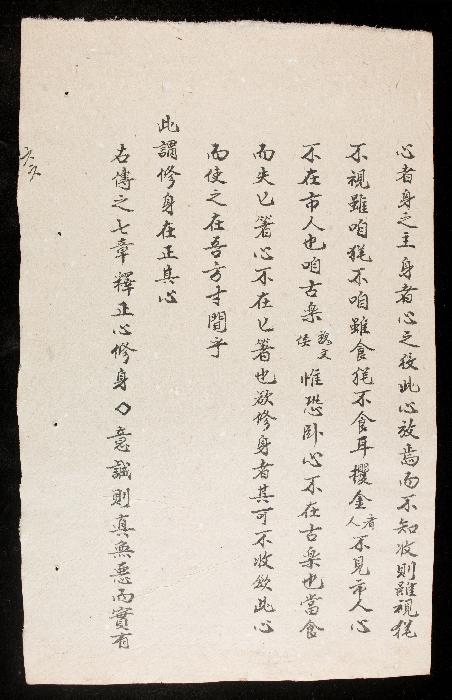 心者身之主身者心之役此心放焉而不知收則雖視猶
不視雖咱猶不咱雖食猶不食耳攫金者人不見市人心
不在市人也咱古樂魏文侯惟恐卧心不在古樂也當食
而失匕箸心不在匕箸也欲修身者其可不收斂此心
而使之在吾方寸間乎
此謂修身在正其心
右傳之七章釋正心修身◇意誠則真無惡而實有